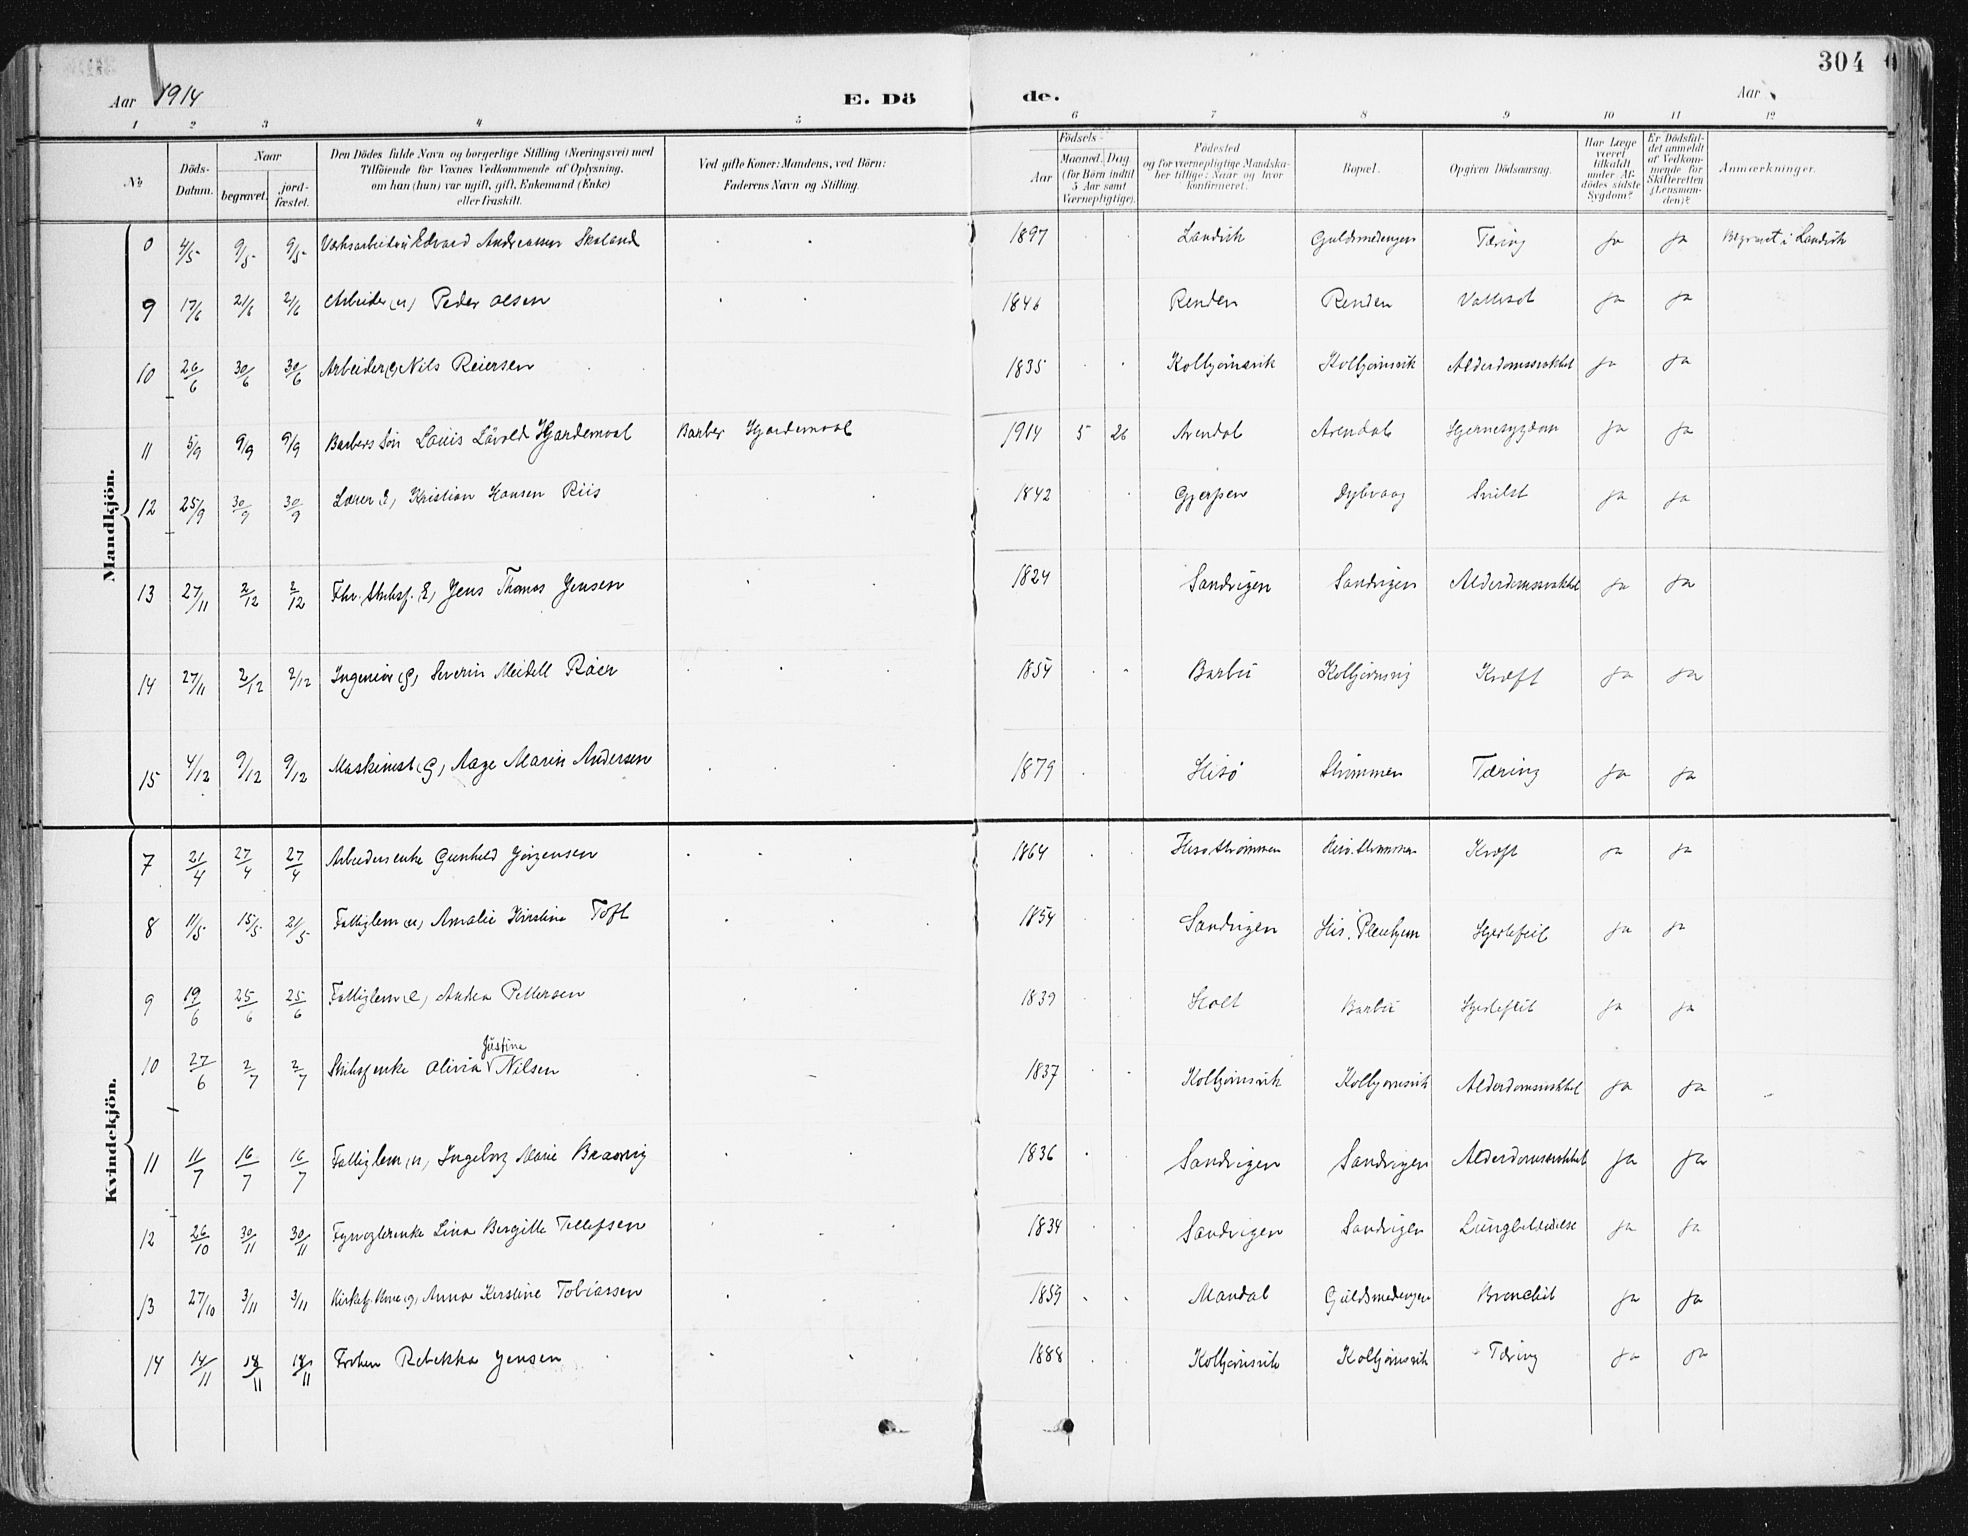 304
Aar 1914 E. Dö de. Aar
1 2 3 4 5 6 7 8 9 10 11 12
No
Döds-Datum.
Naar
begravet.
jord-fæstet.
Den Dödes fulde Navn og borgerlige Stilling (Næringsvei) med
Tilföiende for Voxnes Vedkommende af Oplysning,
om han (hun) var ugift, gift, Enkemand (Enke)
eller fraskilt.
Ved gifte Koner: Mandens, ved Börn:
Faderens Navn og Stilling.
Födsels-
Aar
Maaned. Dag
(for Börn indtil
5 Aar samt
Værnepligtige).
Födested
og for værnepligtige Mandska-
ber tillige: Naar og hvor
konfirmeret.
Bopæl.
Opgiven Dödsaarsag.
Har Læge
været
tilkaldt
under Af-
dödes sidste
Sygdom?
Er Dödsfal-
det anmeldt
af Vedkom-
mende for
Skifteretten
(Lensman-
den)?
Anmærkninger.
Mandkjön.
0 4/5 9/5 9/5 Edvard Andreassen Skoland 1897 Landvik Guldsmedengen Tæring ja ja i Landvik
9 17/6 21/6 21/6 Arbeider (u) Peder Olsen 1846 Renden Renden Vattersot ja ja
10 26/6 30/6 30/6 Arbeider (e) Nils Reiersen 1835 Kolbjørnsvik Kolbjørnsvik Alderdomssvakhet ja ja
11 5/9 9/9 9/9 Barbers Søn Louis Hjardemaal Barber Hjardemaal 1914 5 26 Arendal Arendal Hjernesygdom ja ja
12 25/9 30/9 30/9 Lærer E, Kristian Hansen Riis 1842 Gjerpen Dybvaag ja ja
13 27/11 2/12 2/12 Fhv. Skibsf. E, Jens Thomas Jensen 1824 Sandvigen Sandvigen Alderdomssvakhet ja ja
14 27/11 2/12 2/12 Ingeniør (g, Severin Meidell Röer 1854 Barbu Kolbjørnsvig Kræft ja ja
15 4/12 9/12 9/12 Maskinist (g, Aage Marin Andersen 1879 Hisø Strømmen Tæring ja ja
Kvindekjön.
7 21/4 27/4 27/4 Arbeidersenke Gunhild Jørgensen 1864 Hisø. Strømmen Hisø. Strømmen Kræft ja ja
8 11/5 15/5 21/5 Fattiglem (u) Amalie Kirstine Toft 1854 Sandvigen His. Pleiehjem Hjertefeil ja ja
9 19/6 25/6 25/6 Fattiglem (e, Andrea Pettersen 1839 Holt Barbu Hjertefeil ja ja
10 27/6 2/7 2/7 Skibsf enke Olivia Justine Nilsen 1837 Kolbjørnsvik Kolbjørnsvik Alderdomssvakhet ja ja
11 11/7 16/7 16/7 Fattiglem (u, Ingeborg Marie Braavig 1836 Sandvigen Sandvigen Alderdomssvakhet ja ja
12 26/10 30/11 30/11 Fyrvogterenke Lina Bergitte Tellefsen 1834 Sandvigen Sandvigen Lungebetændelse ja ja
13 27/10 3/11 3/11 Kone (g, Anna Kirstine Tobiassen 1859 Mandal Guldsmedengen Bronchit ja ja
14 14/11 18/11 18/11 Frøken Rebekka Jensen 1888 Kolbjørnsvik Kolbjørnsvik Tæring ja ja